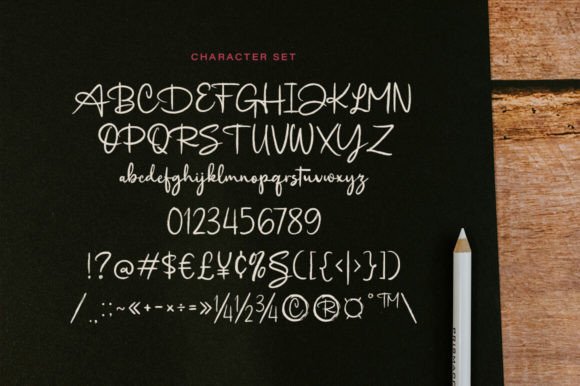 CHARACTER SET
ABCDEFGHIJKLMN
OPQRSTUVWXYZ
abcdefghijklmnopqrstuvwxyz
0123456789
!?@#$€£¥¢%§([{‹|›}])
/.,:;~«+-×÷=»¼½¾©®¤°™\